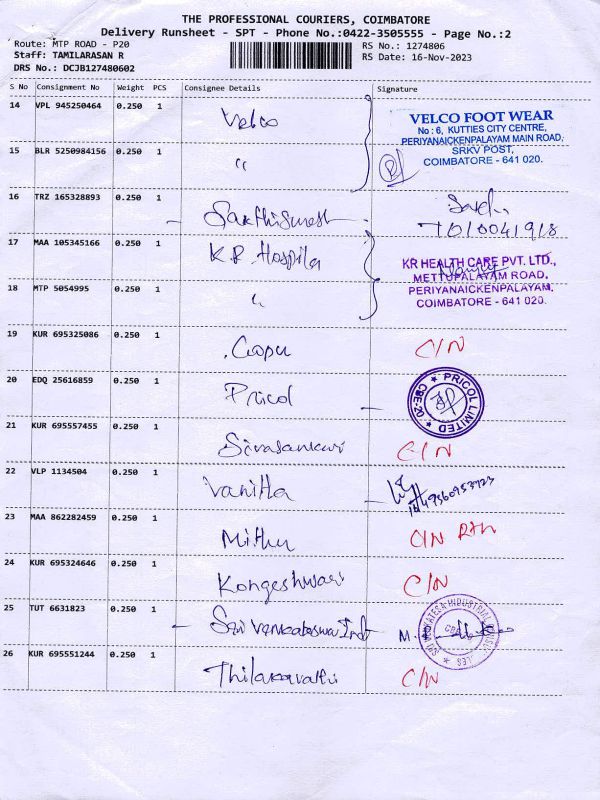 THE PROFESSIONAL COURIERS, COIMBATORE
Delivery Runsheet - SPT - Phone No.:0422-3505555 - Page No.:2
Route: MTP ROAD - P20
Staff: TAMILARASAN R
DRS No.: DCJB127480602
RS No.: 1274806
RS Date: 16-Nov-2023
S No Consignment No Weight PCS Consignee Details Signature
14 VPL 945250464 0.250 1 Velco
VELCO FOOT WEAR
No : 6, KUTTIES CITY CENTRE,
PERIYANAICKENPALAYAM MAIN ROAD,
SRKV POST,
COIMBATORE - 641 020.
15 BLR 5250984156 0.250 1 "
16 TRZ 165328893 0.250 1 Sakthisuresh
7010041918
17 MAA 105345166 0.250 1 K.R. Hospila
KR HEALTH CARE PVT. LTD.,
METTUPALAYAM ROAD,
PERIYANAICKENPALAYAM,
COIMBATORE - 641 020.
18 MTP 5054995 0.250 1 "
19 KUR 695325086 0.250 1 Gopu C/N
20 EDQ 25616859 0.250 1 Pricol
PRICOL LIMITED CBE-20
21 KUR 695557455 0.250 1 Sivasankari C/N
22 VLP 1134504 0.250 1 Vanitta
23 MAA 862282459 0.250 1 Mithu C/N
24 KUR 695324646 0.250 1 Kongeshwari C/N
25 TUT 6631823 0.250 1 Sri Venkateswara Ind
26 KUR 695551244 0.250 1 Thilakavathi C/N